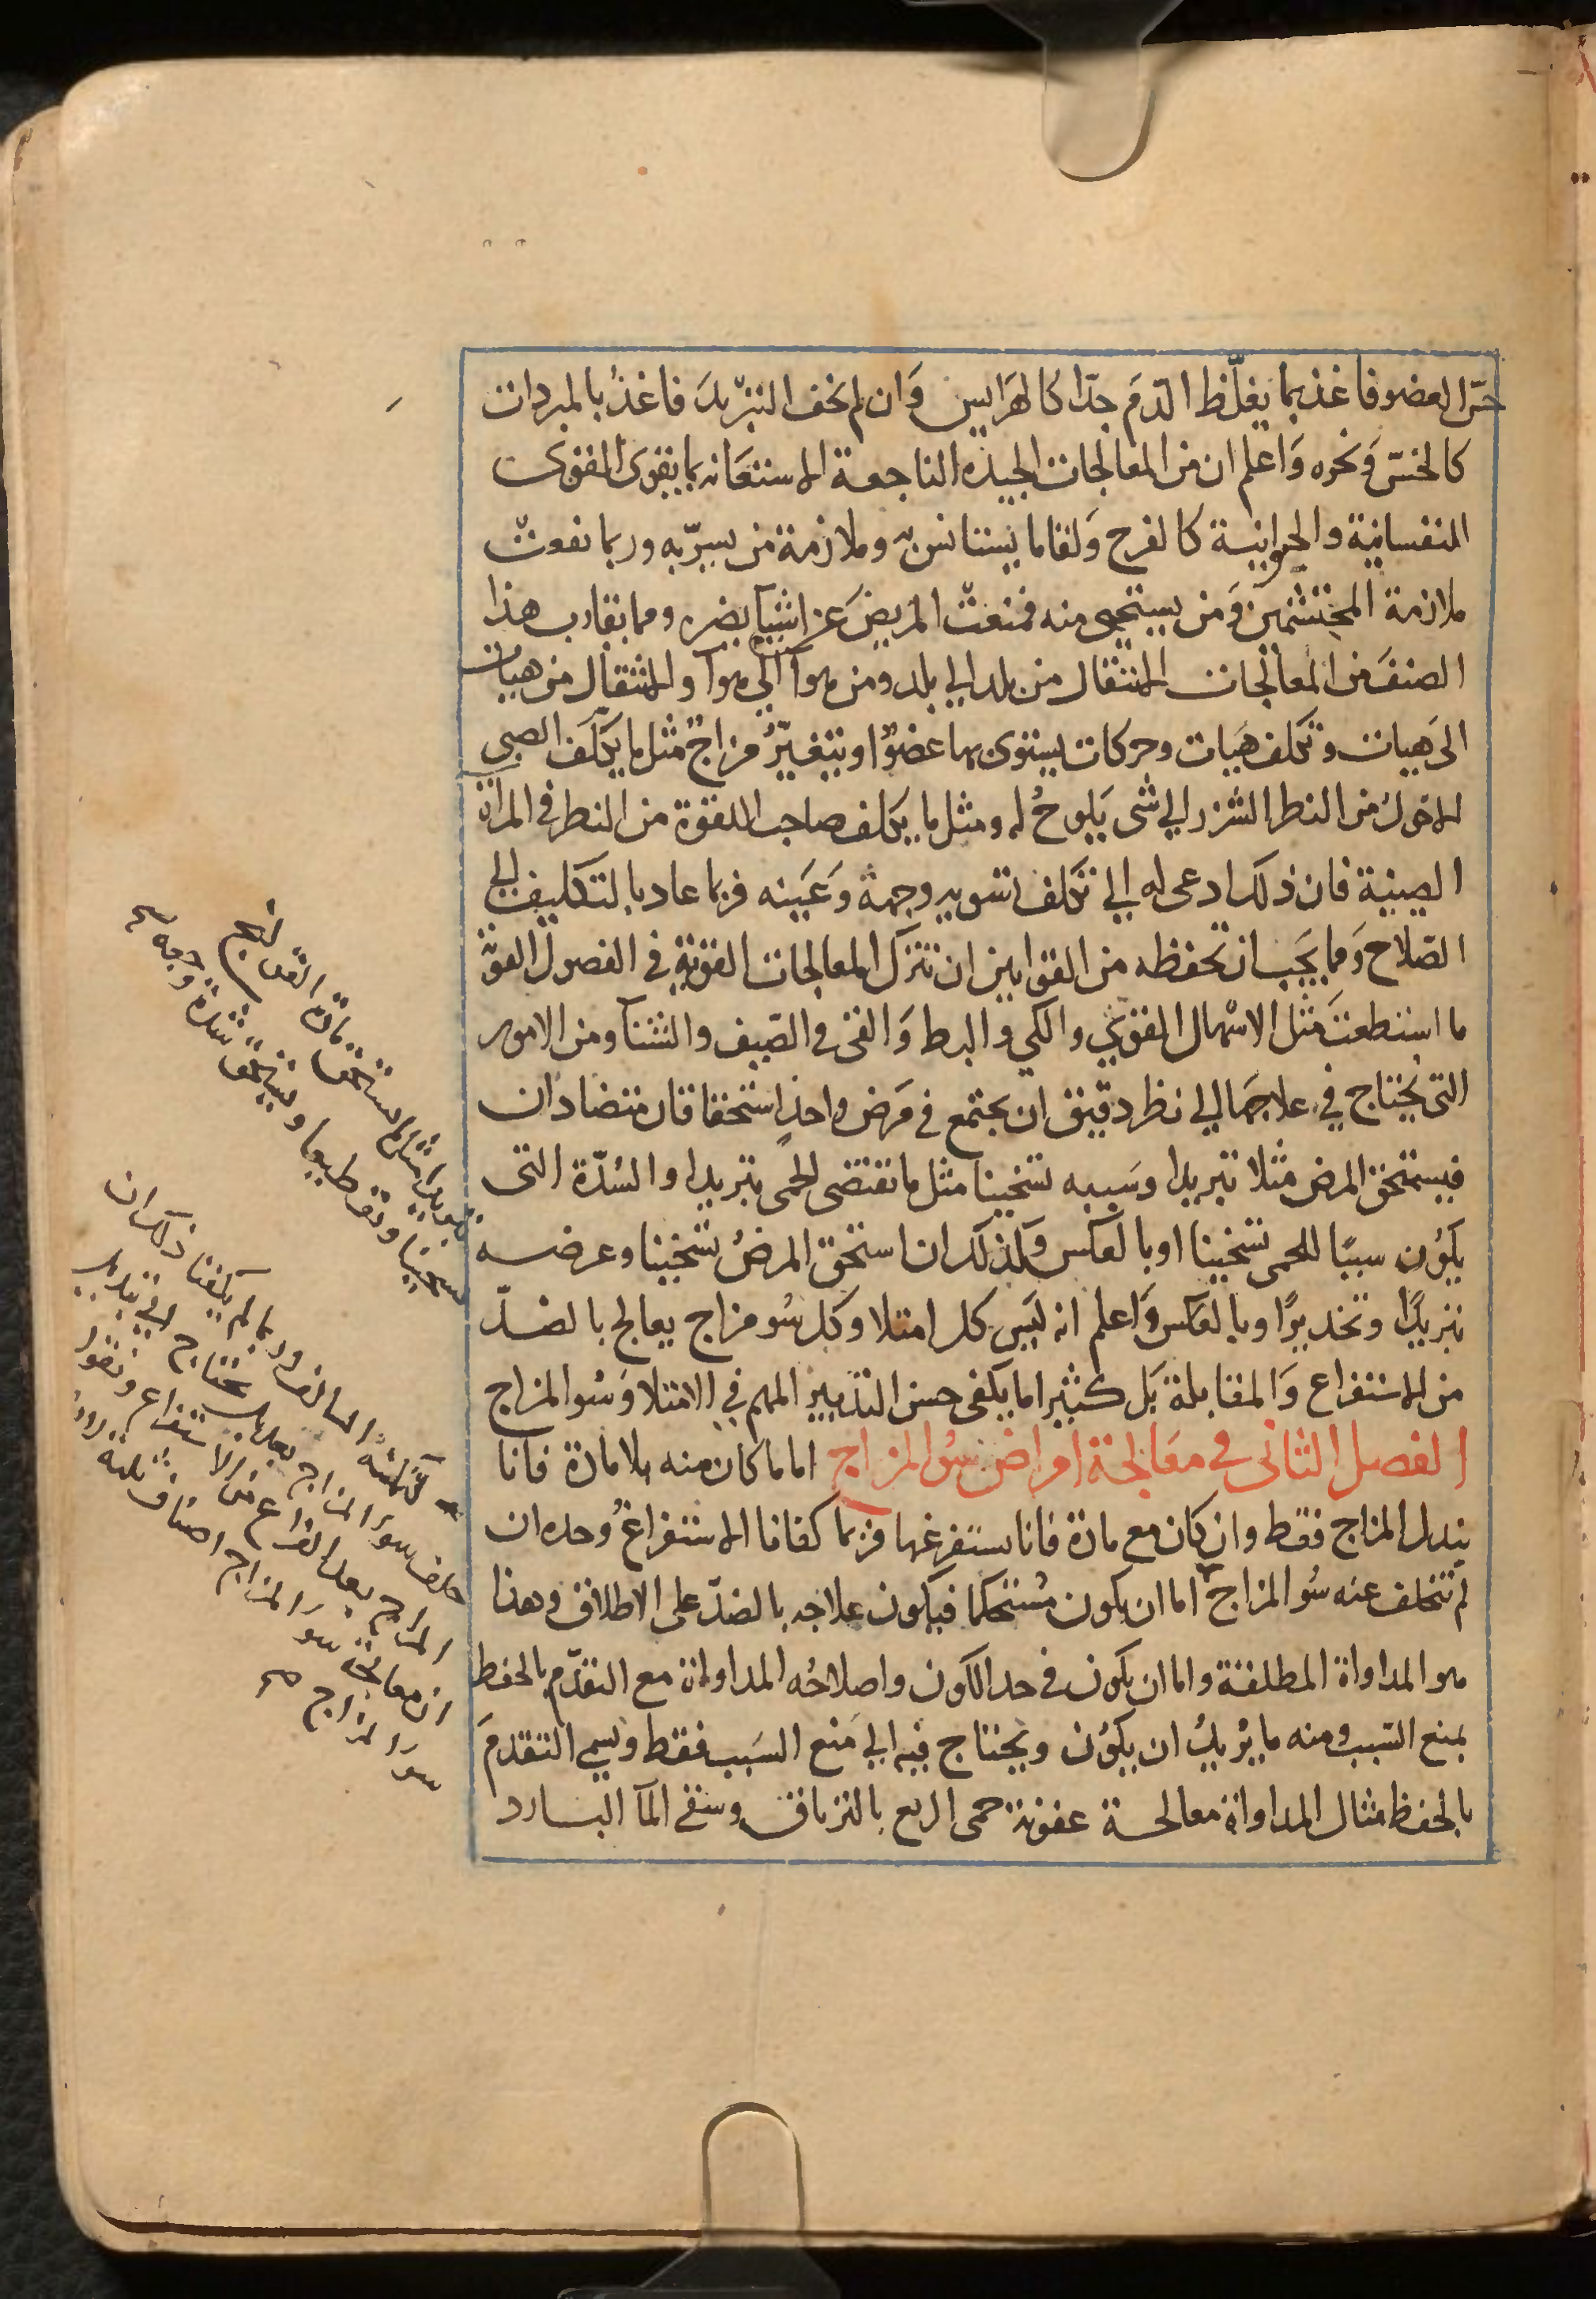 حسّ العضو فاغذ بما يغلّظ الدّم جدّا كالهرايس وان لم تخف التبريد فاغذُ بالمبردات
كالخسّ ونحوه واعلم ان من المعالجات الجيده الناجعة الاستعانه بما يقوى القوى
النفسانية والحيوانية كالفرح ولقاما يستانس به وملازمة من يسرّ به وربما نفعت
ملازمة المحتشمين ومن يستحى منه فمنعت المريض عن اشيآ بضره ومما يقارب هذا
الصنف من المعالجات الانتقال من بلد الى بلد ومن هوآ الى هوآ والانتقال من هيات
الى هيات وتكلف هيات وحركات يستوى بها عضوٌ او يتغيّر مزاج مثل ما يكلف الصبي
الاحول من النظر الشزر الى شى يلوح له ومثل ما يكلف صاحب اللقوة من النظر فى المرآة
الصينية فان ذلك ادعى له الى تكلف تسويه وجهه وعينه فربما عاد بالتكليف الى
الصّلاح ومما يجب ان تحفظه من القوانين ان تترك المعالجات القوية فى الفصول القوية
ما استطعت مثل الاسهال القوى والكي والبط والقى فى الصيف والشتآ ومن الامور
التى تحتاج فى علاجها الى نظر دقيق ان يجتمع فى مرض واحد استحقاقان متضادان
فيستحق المرض مثلا تبريدا وسببه تسخينا مثل ما تقتضى الحمى تبريدا والسُدّة التى
يكون سببًا للحمى تسخينا او بالعكس وكذلك ان استحق المرض تسخينا وعرضه
تبريدًا وتخديرًا وبالعكس واعلم انه ليس كل امتلا وكل سُو مزاج يعالج بالضدّ
من الاستفراغ والمقابلة بل كثيرا ما يكفى حسن التدبير المهم فى الامتلا وسُو المزاج
الفصل الثانى فى معالجة امراض سُو المزاج اما ما كان منه بلا مادة فانا
نبدل المزاج فقط وان كان مع مادة فانا نستفرغها فربما كفانا الاستفراغُ وحده ان
لم تتخلف عنه سُو المزاج اما ان يكون مُستحكما فيكون علاجه بالضدّ على الاطلاق وهذا
هو المداواة المطلقة واما ان يكون فى حد الكون واصلاحُه المداواة مع التقدّم بالحفظ
بمنع السّبب ومنه ما يُريدُ ان يكون ويحتاج فيه الى منع السبب فقط ويسمى التقدم
بالحفظ مثال المداواة معالجة عفونة حمى الربع بالترياق وسقى المآ البارد
تبريدا مثل ما يستحق مادة القولنج
تسخينا وتقطيعا ويستحق شدة وجعه
لتمكنه السالف وربما لم يكفنا ذلك ان
خلف سو المزاج بعدها بل يحتاج الى تبديل
المزاج بعد الفراغ من الاستفراغ ونقول
ان معالجة سو المزاج اصناف ثلثة
سو المزاج